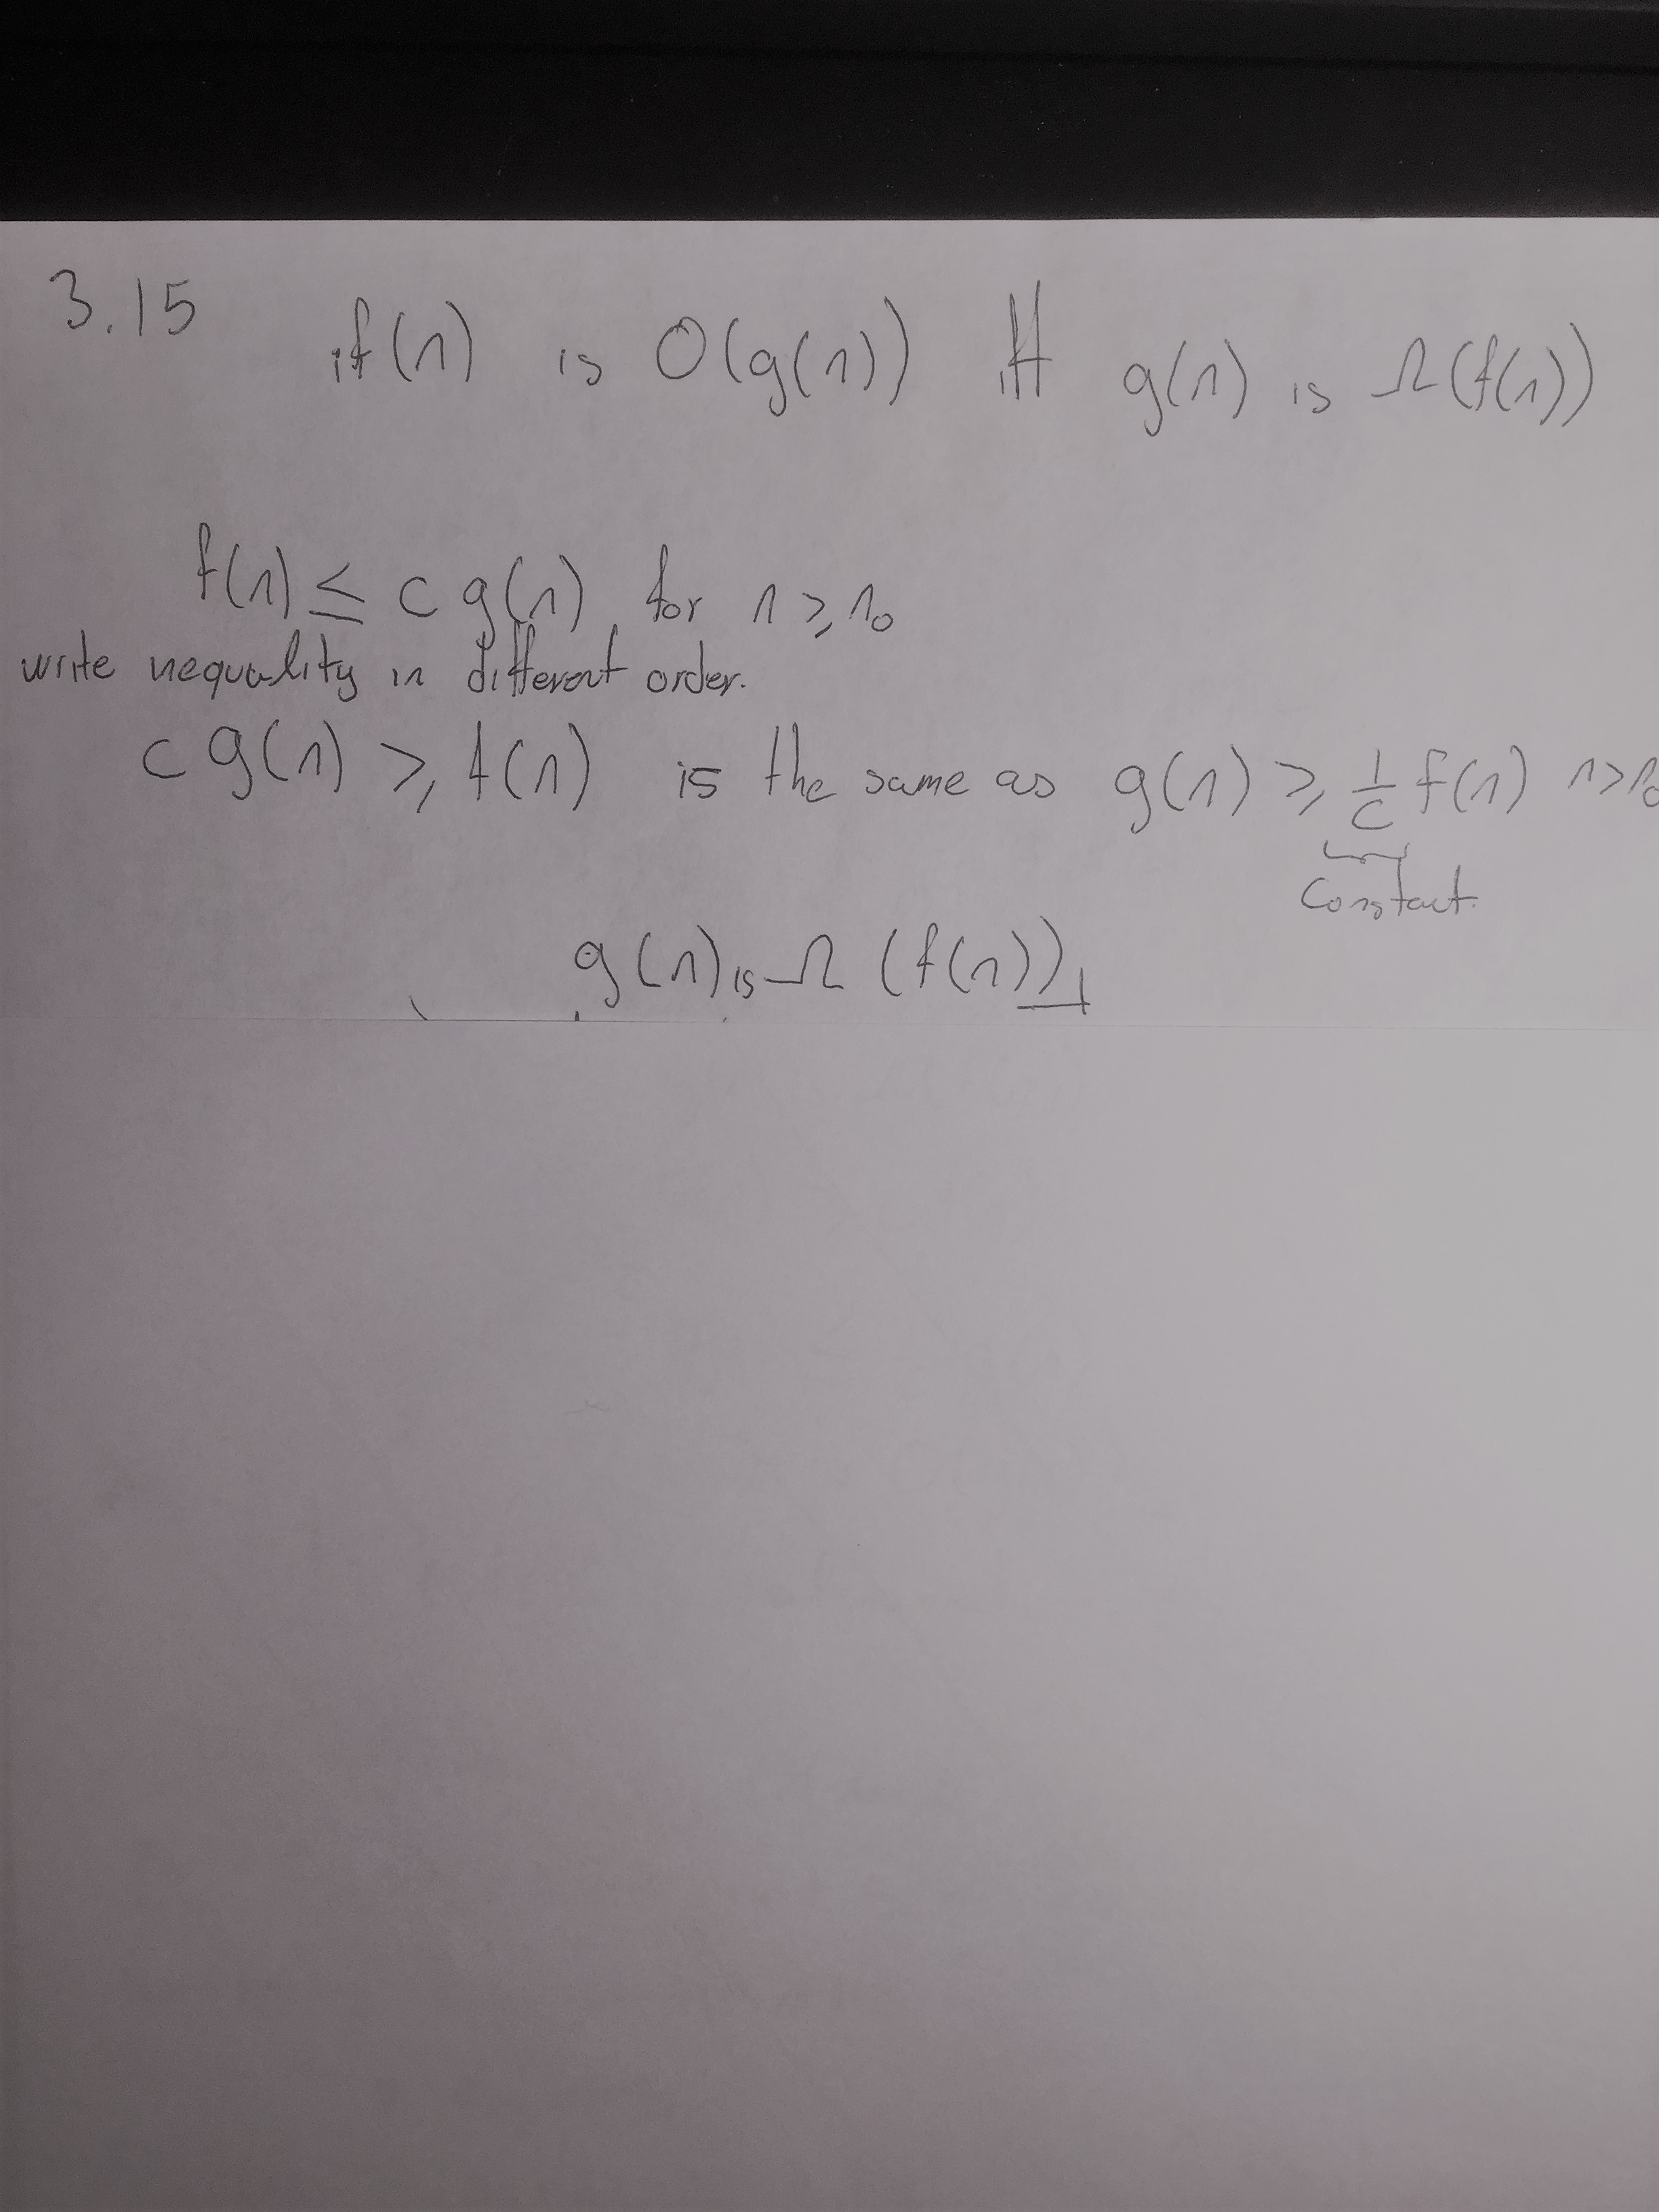 3.15 if(n) is O(g(n)) iff g(n) is Ω(f(n))
f(n) ≤ c g(n) for n ≥ n₀
write inequality in different order.
c g(n) ≥ f(n) is the same as g(n) ≥ 1/c f(n) n > n₀
constant.
g(n) is Ω (f(n))